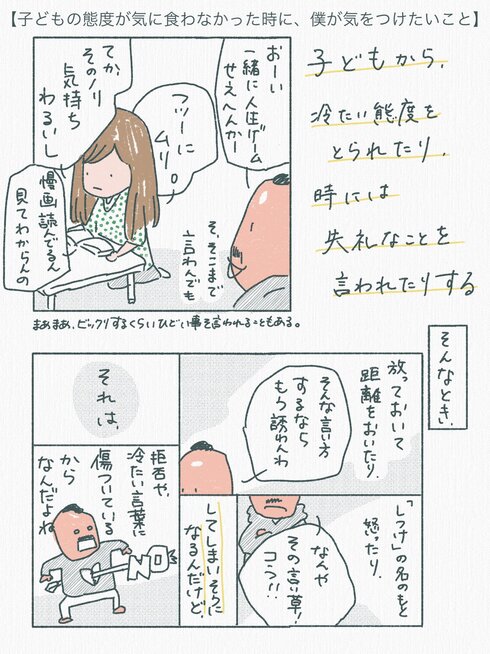 【子どもの態度が気に食わなかった時に、僕が気をつけたいこと】
子どもから、
冷たい態度を
とられたり、
時には
失礼なことを
言われたりする
おーい
一緒に人生ゲーム
せえへんかー
フツーに
ムリ。
てか、
そのノリ
気持ち
わるいし
漫画読んでるん
見てわからんの
そ、そこまで
言わんでも
まぁまぁ、ビックリするくらいひどい事を言われることもある。
そんなとき、
放っておいて
距離をおいたり、
そんな言い方
するなら
もう誘わんわ
「しつけ」の名のもと
怒ったり、
なんや
その言い草!
コラ!!
してしまいそうに
なるんだけど、
それは、
拒否や、
冷たい言葉に
傷ついている
から
なんだよね
NO